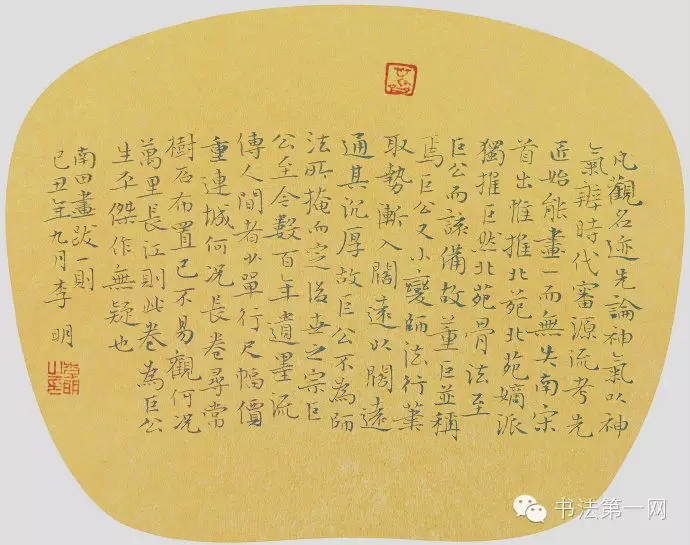 凡觀名迹先論神氣以神
氣辨時代審源流考先
匠始能畫一而無失南宋
首出惟推北苑北苑嫡派
獨推巨然北苑骨法至
巨公而該備故董巨並稱
焉巨公又小變師法行筆
取勢漸入闊遠以闊遠
通其沉厚故巨公不為師
法所掩而定後世之宗巨
公至今數百年遺墨流
傳人間者少單行尺幅價
重連城何况長卷尋常
樹石布置已不易觀何况
萬里長江則此卷為巨公
生平傑作無疑也
南田畫跋一則
己丑年九月李明
李明
书法第一网